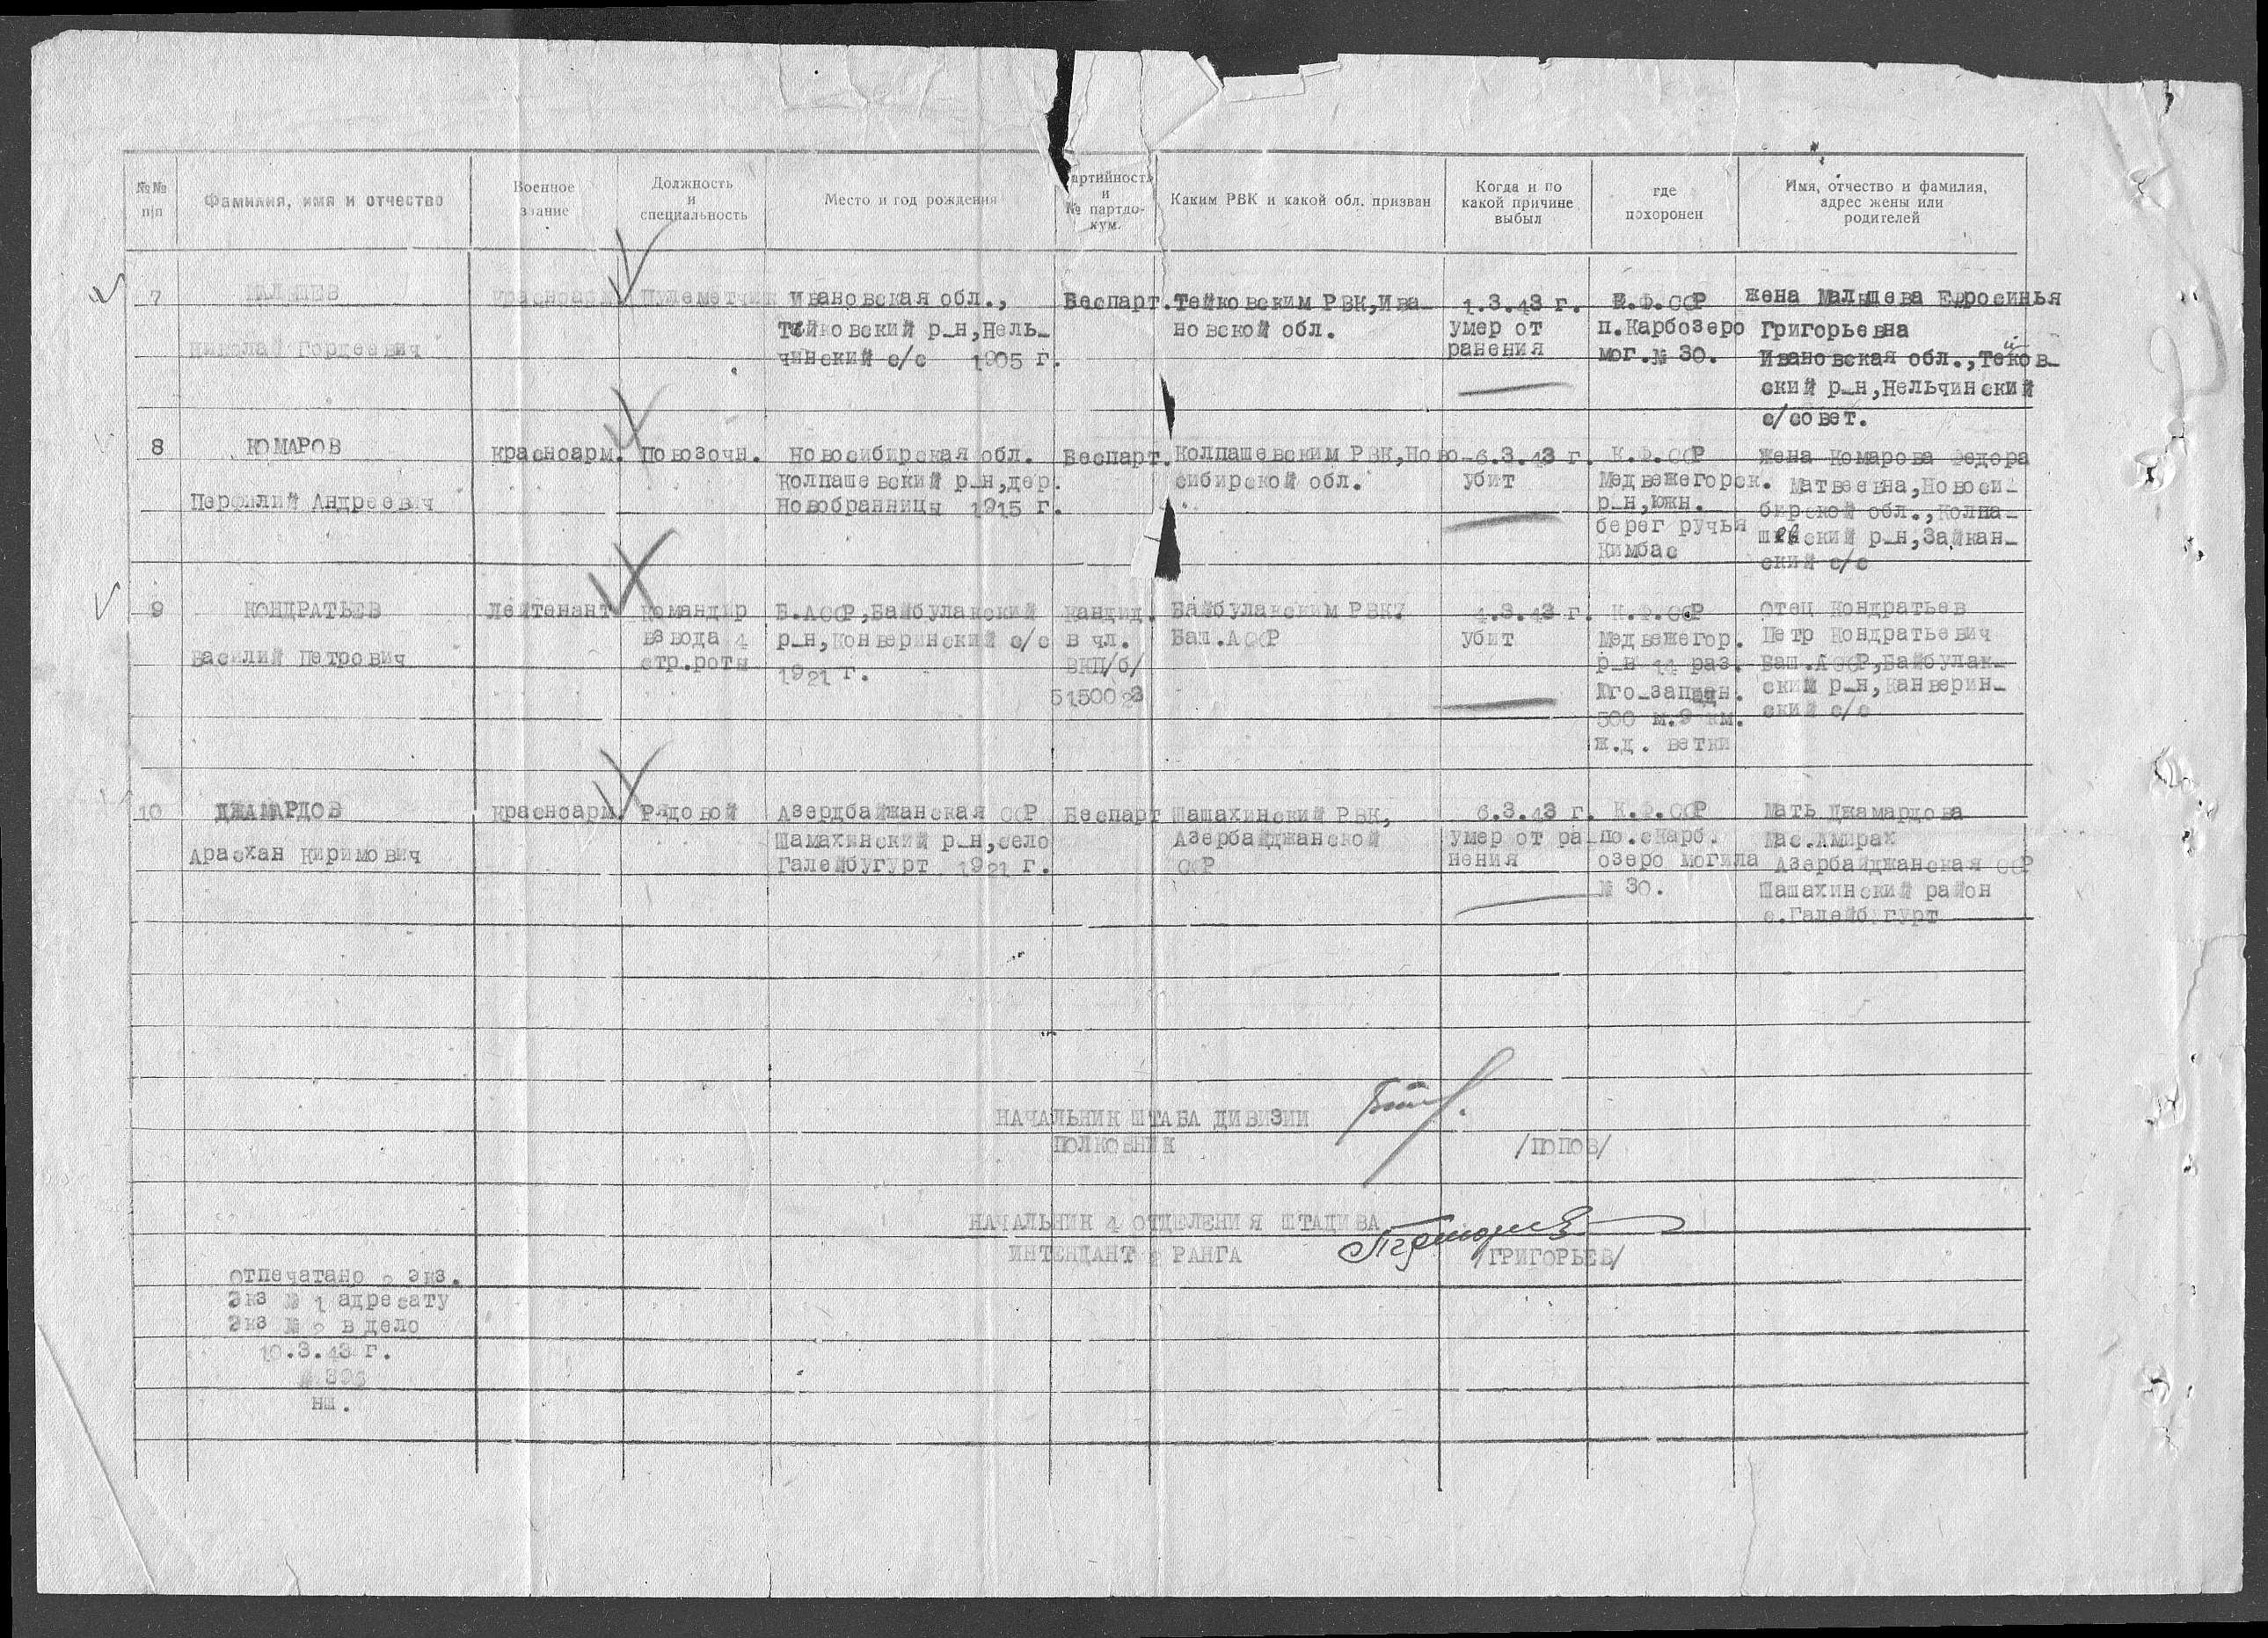 №№ п/п
Фамилия, имя и отчество
Военное звание
Должность и специальность
Место и год рождения
артийность и № партдо-кум.
Каким РВК и какой обл. призван
Когда и по какой причине выбыл
где похоронен
Имя, отчество и фамилия, адрес жены или родителей
7
МАЛЫШЕВ
Николай Гордеевич
красноарм.
Пулеметчик
Ивановская обл.,
Тейковский р-н,Нель-
чинский с/с 1905 г.
Беспарт.
Тейковским РВК,Ива-
новской обл.
1.3.43 г.
умер от
ранения
К.Ф.ССР
п.Карбозеро
мог.№ 30.
жена Малышева Ефросинья
Григорьевна
Ивановская обл.,Тейков-
ский р-н,Нельчинский
с/совет.
8
КОМАРОВ
Перфилий Андреевич
красноарм.
Повозочн.
Новосибирская обл.
Колпашевский р-н,дер.
Новобранницы 1915 г.
Беспарт.
Колпашевским РВК,Ново-
сибирской обл.
6.3.43 г.
убит
К.Ф.ССР
Медвежегорск.
р-н,южн.
берег ручья
Кимбас
Жена Комарова Федора
Матвеевна,Новоси-
бирской обл.,Колпа-
шевский р-н,Зайкан-
ский с/с
9
КОНДРАТЬЕВ
Василий Петрович
Лейтенант
командир
взвода 4
стр.роты
Б.АССР,Байбулакский
р-н,Конверинский с/с
1921 г.
кандид.
в чл.
ВКП/б/
5150023
Байбулакским РВК?
Баш.АССР
4.3.43 г.
убит
К.Ф.ССР
Медвежегор.
р-н 14 раз.
Юго-западн.
500 м.9 км.
ж.д. ветки
Отец Кондратьев
Петр Кондратьевич
Баш.АССР,Байбулак-
ский р-н,Канверин-
ский с/с
10
ДЖАМАРДОВ
Арасхан Киримович
красноарм.
Рядовой
Азердбайжанская ССР
Шамахинский р-н,село
Галейбугурт 1921 г.
Беспарт
Шашахинский РВК,
Азербайджанской
ССР
6.3.43 г.
умер от ра-
нения
К.Ф.ССР
по.скарб.
озеро могила
№ 30.
Мать Джамардова
Мас.Амирах
Азербайджанская ССР
Шашахинский район
с.Галейбугурт
НАЧАЛЬНИК ШТАБА ДИВИЗИИ
ПОЛКОВНИК
/ПОПОВ/
НАЧАЛЬНИК 4 ОТДЕЛЕНИЯ ШТАДИВА
ИНТЕНДАНТ 2 РАНГА
/ГРИГОРЬЕВ/
Отпечатано 2 экз.
Экз № 1 адресату
Экз № 2 в дело
10.3.43 г.
нш.